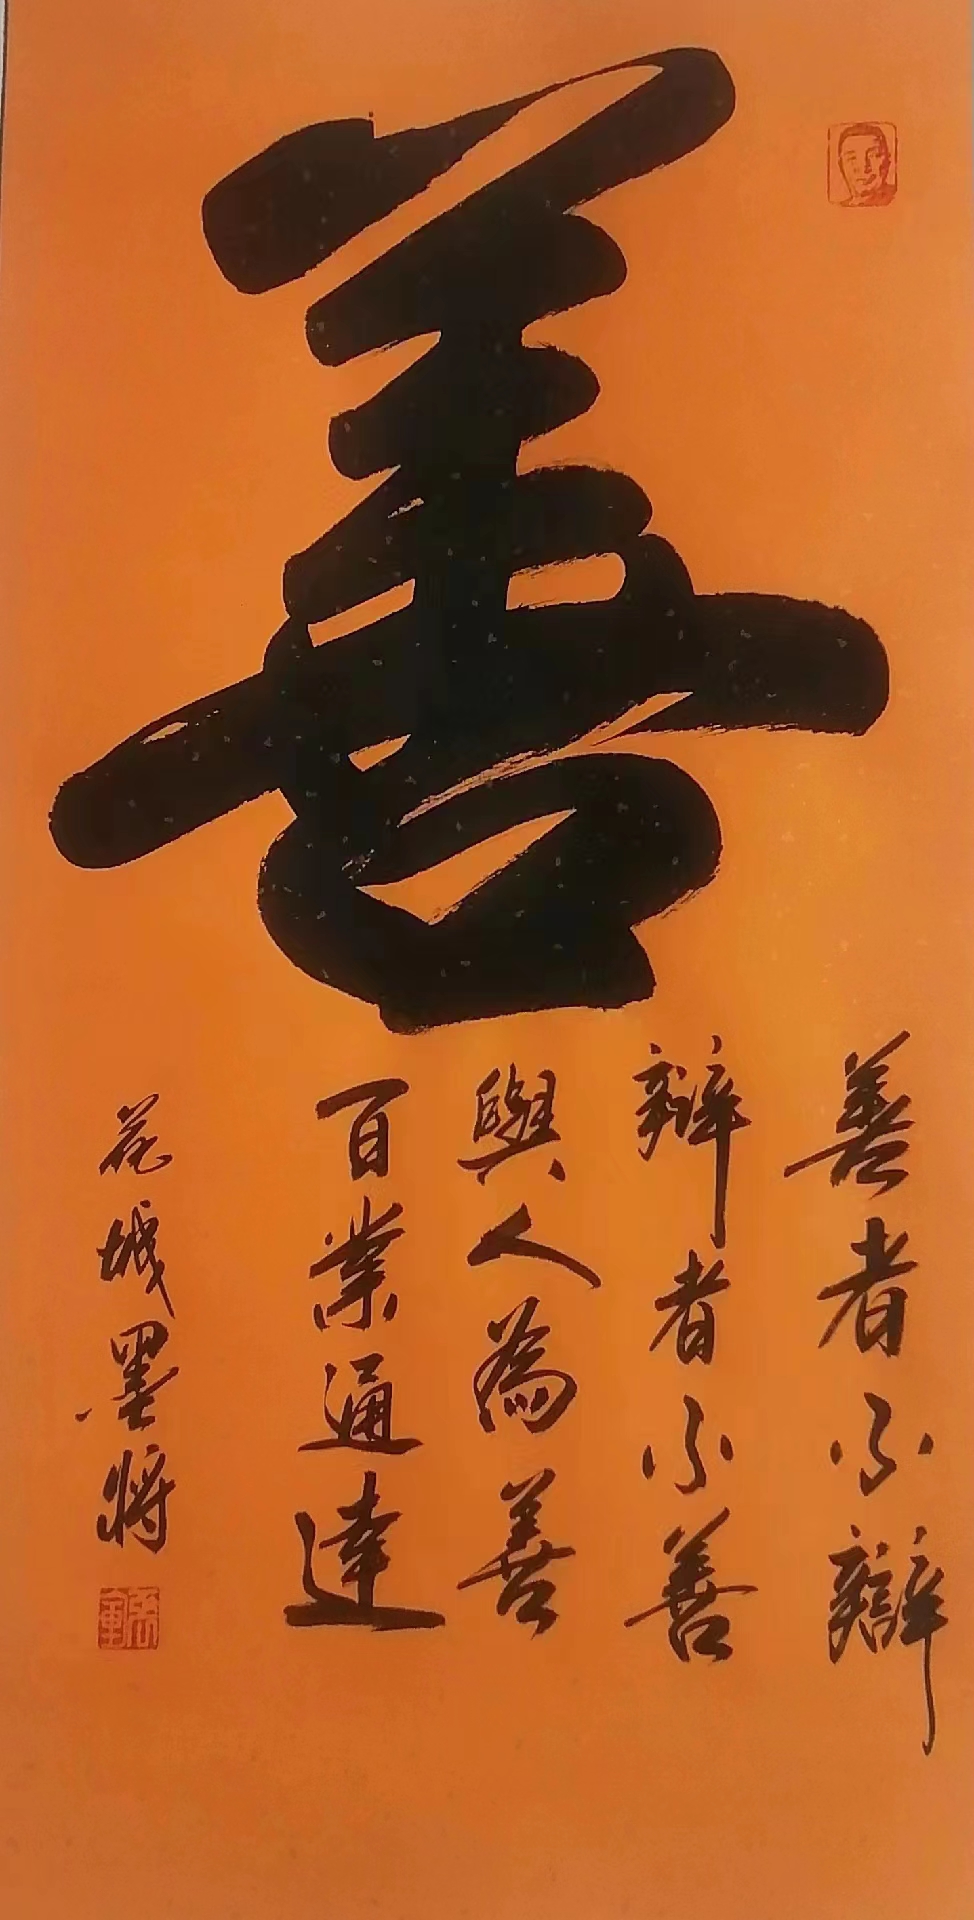 善
善者不辯
辯者不善
與人為善
百業通達
花城墨將